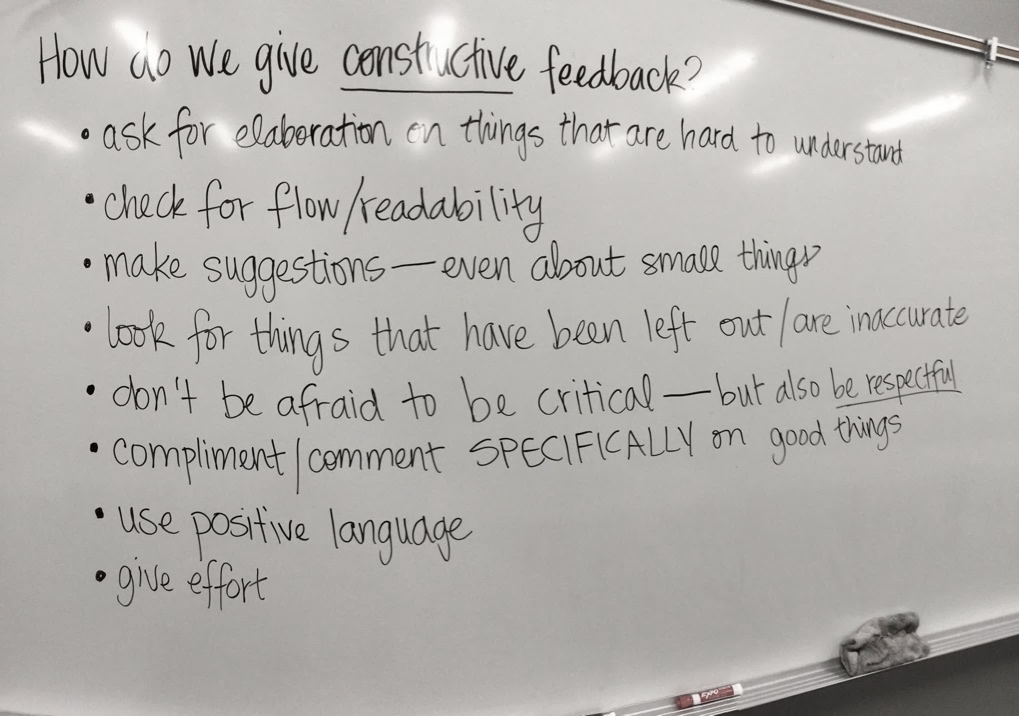 How do we give constructive feedback?
• ask for elaboration on things that are hard to understand
• check for flow/readability
• make suggestions — even about small things
• look for things that have been left out/are inaccurate
• don't be afraid to be critical — but also be respectful
• compliment/comment SPECIFICALLY on good things
• use positive language
• give effort
EXPO